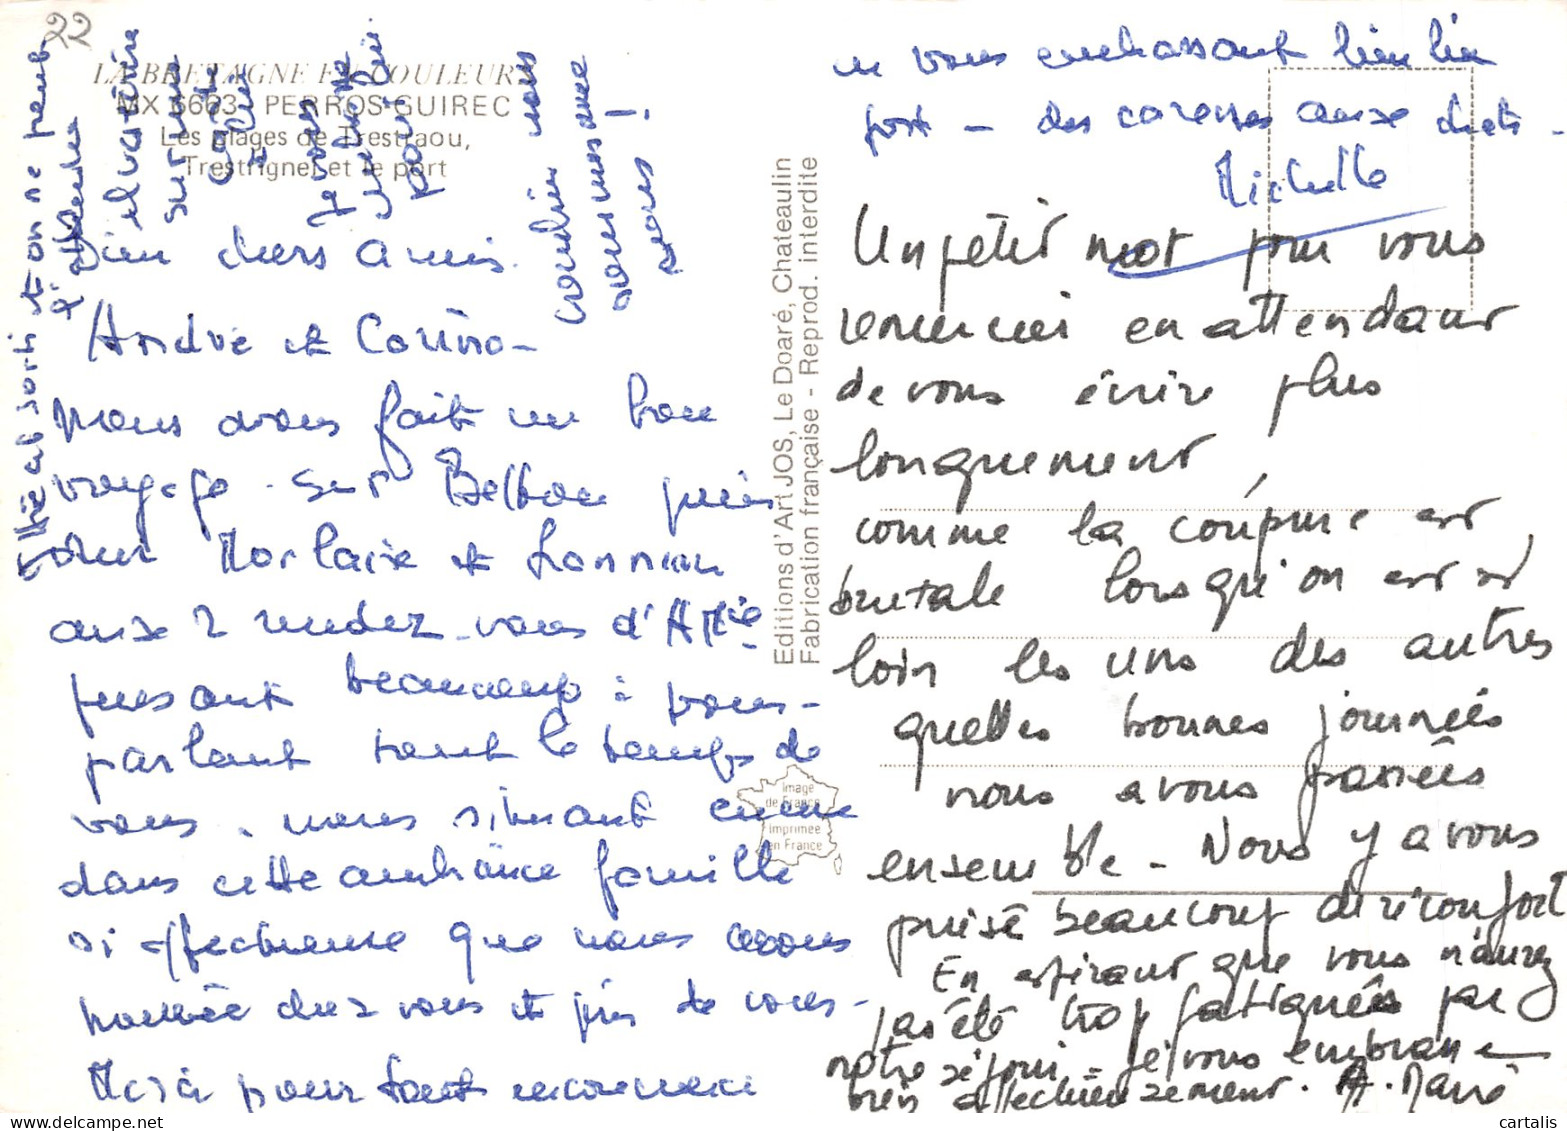 22
LA BRETAGNE EN COULEURS
MX 6663 - PERROS-GUIREC
Les plages de Trestraou,
Trestrignel et le port
Bien chers amis
André et Corinno -
nous avons fait un bon
voyage. sur puis
sur Morlaix et Lannion
aux 2 rendez-vous d'A Mie
pensant beaucoup à vous -
parlant tout le temps de
vous. nous situant encore
dans cette ambiance famille
si affectueuse que nous avons
trouvée chez vous et près de vous -
Merci pour tout encore merci
en vous embrassant bien bien
fort - des caresses aux chats -
Michelle
Un petit mot pour vous
remercier en attendant
de vous écrire plus
longuement,
comme la coupure est
brutale lorsqu'on est si
loin les uns des autres
quelles bonnes journées
nous avons passées
ensemble - Nous y avons
puisé beaucoup de réconfort
En espérant que vous n'aurez
pas été trop fatigués par
notre séjour - je vous embrasse
bien affectueusement. A. Marie
Editions d'Art JOS, Le Doaré, Chateaulin
Fabrication française - Reprod. interdite
Image
de France
Imprimée
en France